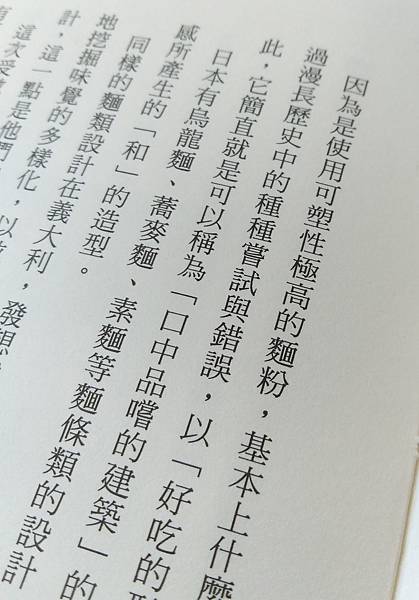 因為是使用可塑性極高的麵粉，基本上什麼
過漫長歷史中的種種嘗試與錯誤，以「好吃的
此，它簡直就是可以稱為「口中品嚐的建築」的
日本有烏龍麵、蕎麥麵、素麵等麵條類的設計
感所產生的「和」的造型。
同樣的麵類設計在義大利，發想
地挖掘味覺的多樣化，以
計，這一點是他們
這次受